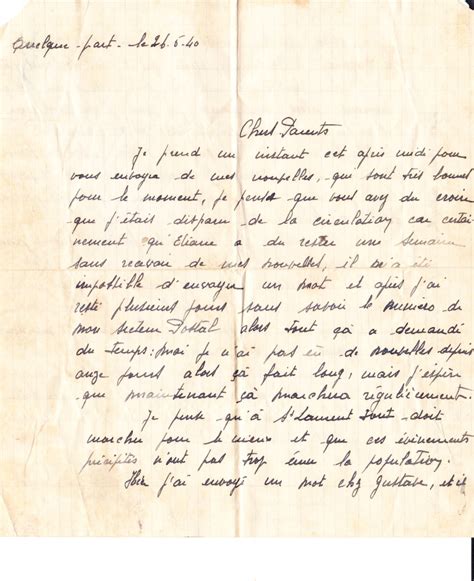 Quelque-part- le 26.5.40
Chers Parents
Je prend un instant cet après midi pour
vous envoyer de mes nouvelles, qui sont très bonnes
pour le moment, je pense que vous avez du croire
que j'étais disparu de la circulation car certai-
nement qu'Eliane a du rester une semaine
sans recevoir de mes nouvelles, il m'a été
impossible d'envoyer un mot et après j'ai
resté plusieurs jours sans savoir le numéro de
mon secteur Postal alors tout çà a demandé
du temps: moi je n'ai pas eu de nouvelles depuis
onze jours alors çà fait long, mais j'espère
que maintenant çà marchera régulièrement.
Je pense qu'à St Laurent tout doit
marcher pour le mieux et que ces évènements
précipités n'ont pas trop ému la population.
Hier j'ai envoyé un mot chez Gustave, et il